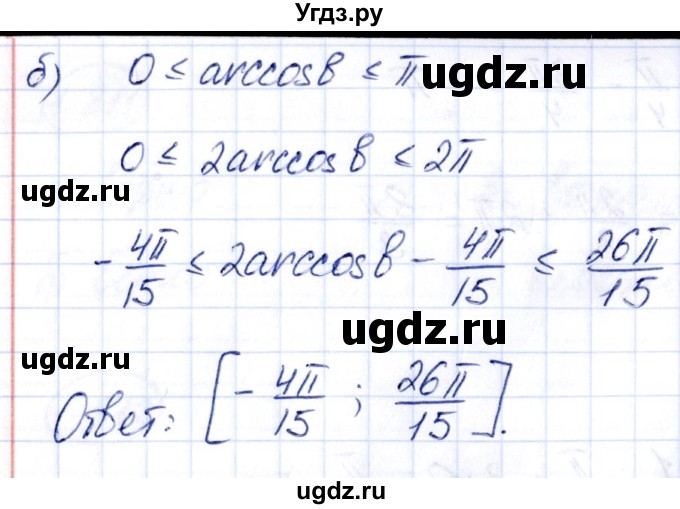 Угдз.ру
б) 0 ≤ arccosb ≤ π ugdz.ru
0 ≤ 2arccosb ≤ 2π
ugdz.ru
-4π/15 ≤ 2arccosb - 4π/15 ≤ 26π/15
ugdz.ru
ugdz.ru
Ответ: [-4π/15 ; 26π/15].
ugdz.ru
ugdz.ru